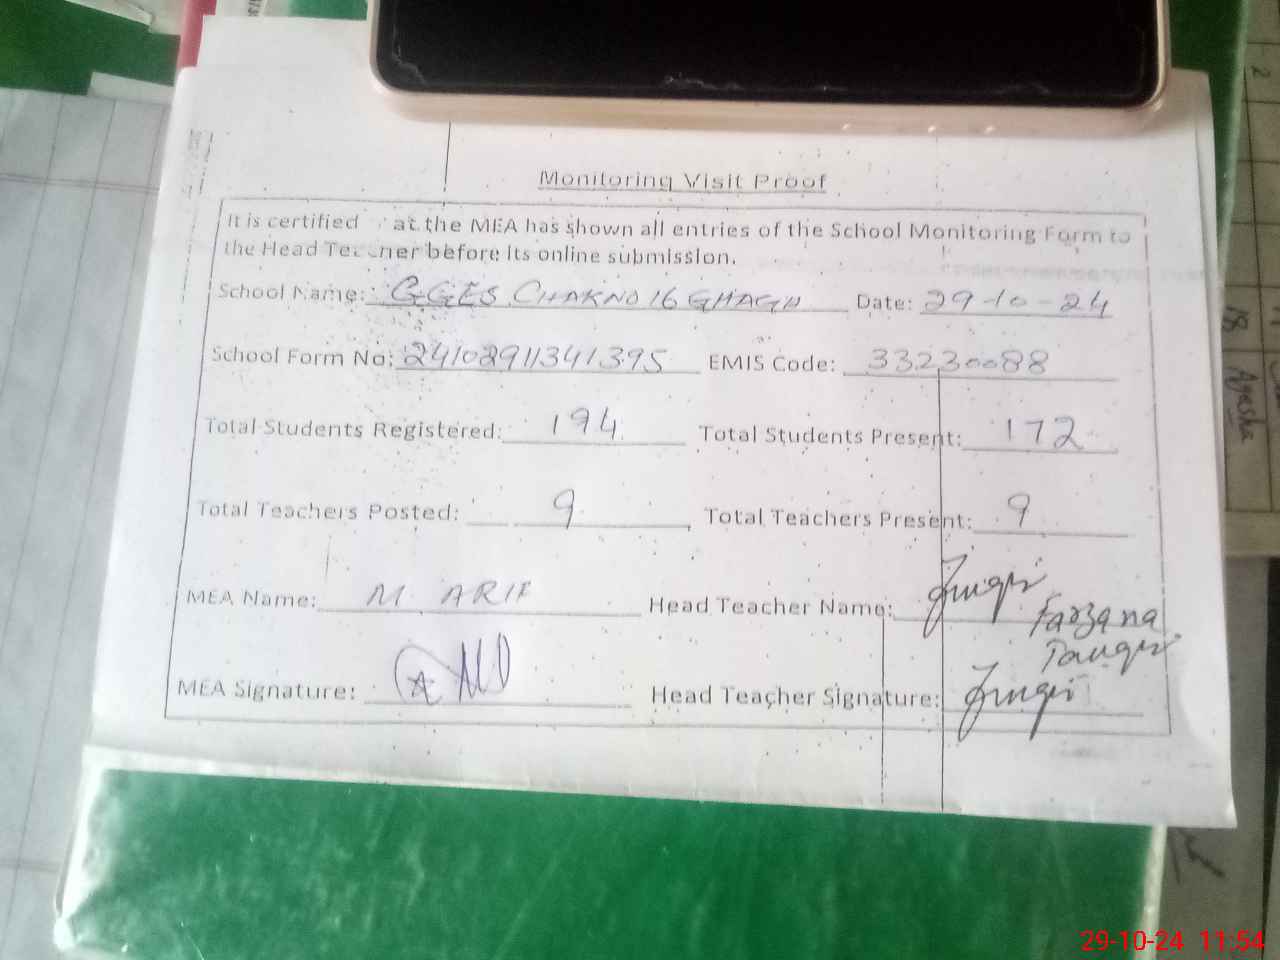 Monitoring Visit Proof
It is certified at the MEA has shown all entries of the School Monitoring Form to
the Head Teacher before its online submission.
School Name: GGES CHAKNO 16 GHAGH Date: 29-10-24
School Form No: 24102911341395 EMIS Code: 33230088
Total Students Registered: 194 Total Students Present: 172
Total Teachers Posted: 9 Total Teachers Present: 9
MEA Name: M ARIF Head Teacher Name:
Farzana
MEA Signature: Head Teacher Signature:
18 Ayesha
29-10-24 11:54